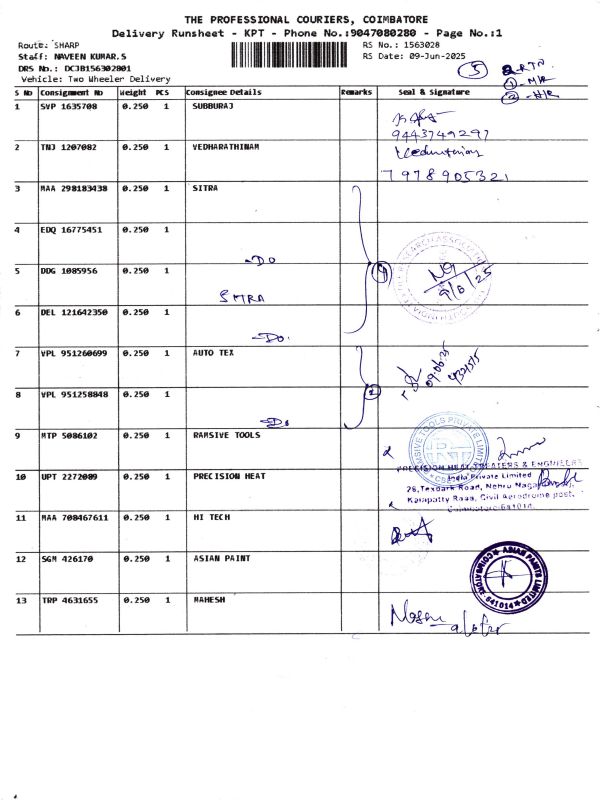 THE PROFESSIONAL COURIERS, COIMBATORE
Delivery Runsheet - KPT - Phone No.:9047080280 - Page No.:1
Route: SHARP RS No.: 1563028
Staff: NAVEEN KUMAR.S RS Date: 09-Jun-2025
DRS No.: DCJB156302801
Vehicle: Two Wheeler Delivery
5 2-RTN
S No Consignment No Weight PCS Consignee Details Remarks Seal & Signature
1 SVP 1635708 0.250 1 SUBBURAJ
9443749297
2 TNJ 1207082 0.250 1 VEDHARATHINAM
7978905321
3 MAA 298183438 0.250 1 SITRA
4 EDQ 16775451 0.250 1
-DO
5 DDG 1085956 0.250 1 4
SITRA 9/6/25
6 DEL 121642350 0.250 1
-DO
7 VPL 951260699 0.250 1 AUTO TEX
09.06.25
8 VPL 951258848 0.250 1 2
-DO
9 MTP 5086102 0.250 1 RAMSIVE TOOLS
RAMSIVE TOOLS PRIVATE LIMITED
PRECISION HEAT TREATERS & ENGINEERS
10 UPT 2272089 0.250 1 PRECISION HEAT
India Private Limited
Road, Nehru
Kalapatty Road, Civil Aerodrome post,
Coimbatore-641014
11 MAA 708467611 0.250 1 HI TECH
12 SGM 426170 0.250 1 ASIAN PAINT
ASIAN PAINTS LIMITED COIMBATORE 641014
13 TRP 4631655 0.250 1 MAHESH